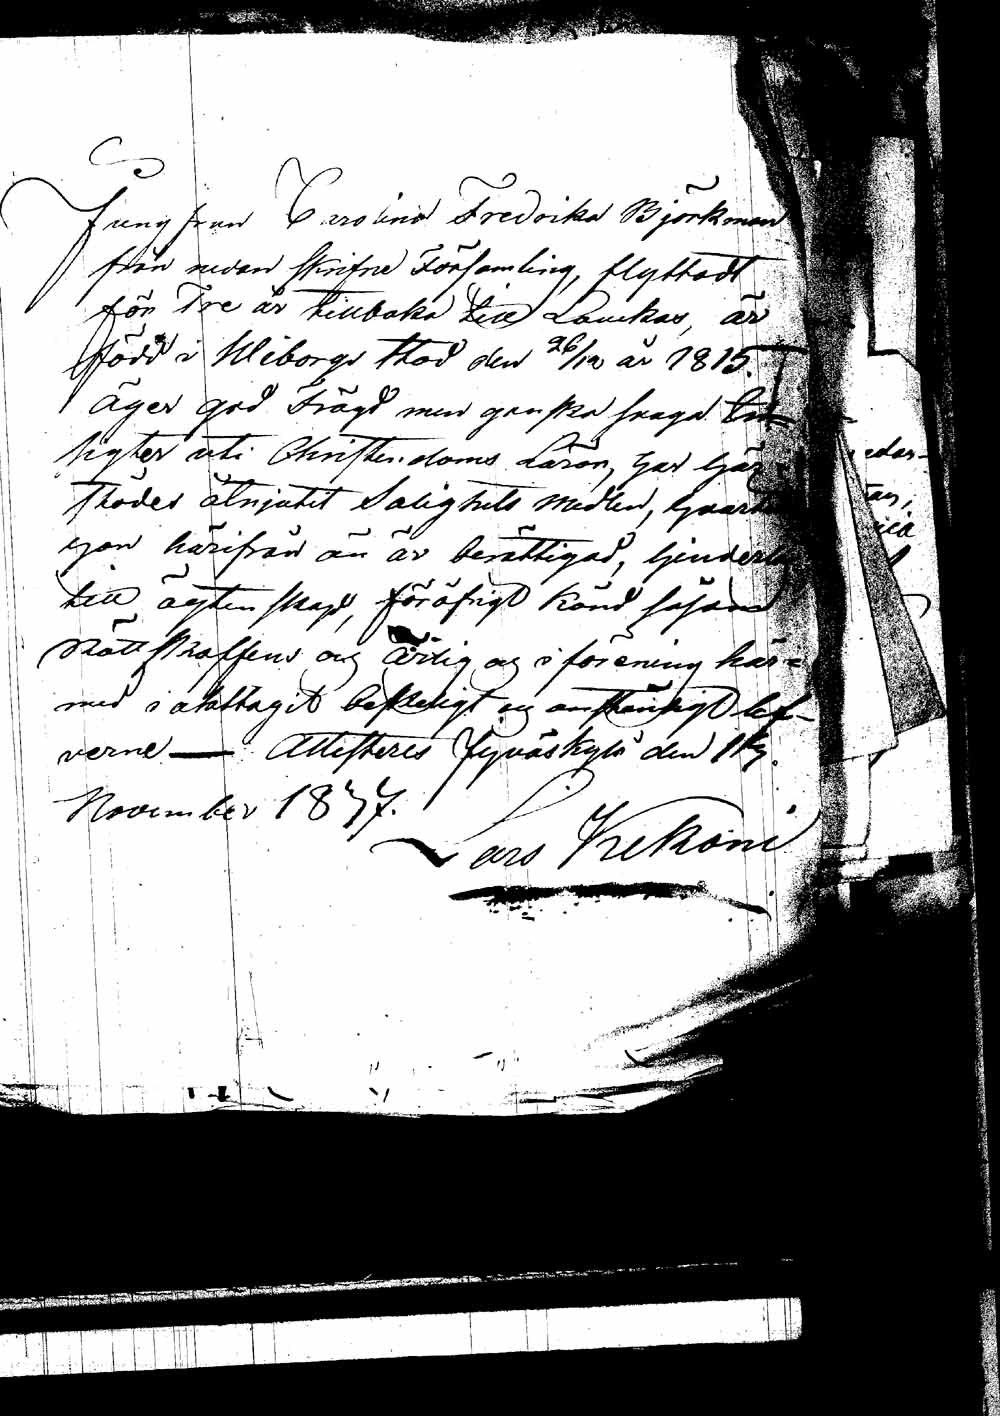 Jungfrun Carolina Fredrika Björkman
från nedan skrifne Församling, flyttadt
för Tre år tillbaka till Laukas, är
född i Wiborgs stad den 26/12 år 1815.
äger god Frägd men ganska svaga In-
sigter uti Christendoms Läran, har här-
städes åtnjutit Salighets medlen, hvartill
hon härifrån än är berättigad, hinderlös
till ägtenskap, föröfrigt känd såsom
rättskaffens og ärlig og i förening här-
med iakttagit beskeligt og anständigt lef-
verne — Attesteres Jyväskylä den
November 1837.
Lars Kekoni